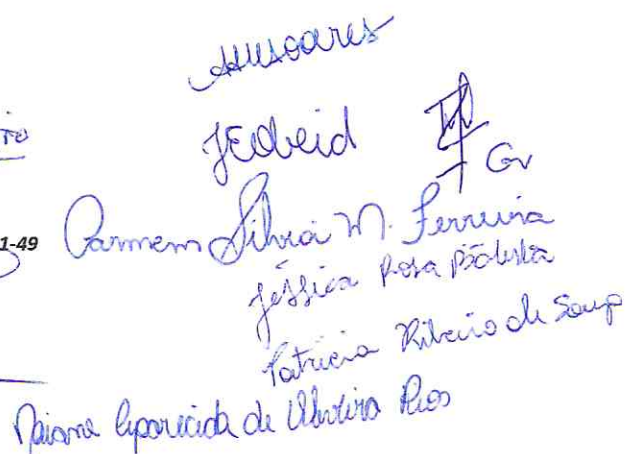 JEobeid
Gv
1-49
Carmem Silvia M. Ferreira
Jéssica Rosa
Patricia Ribeiro de Souza
Aparecida de Oliveira Rios